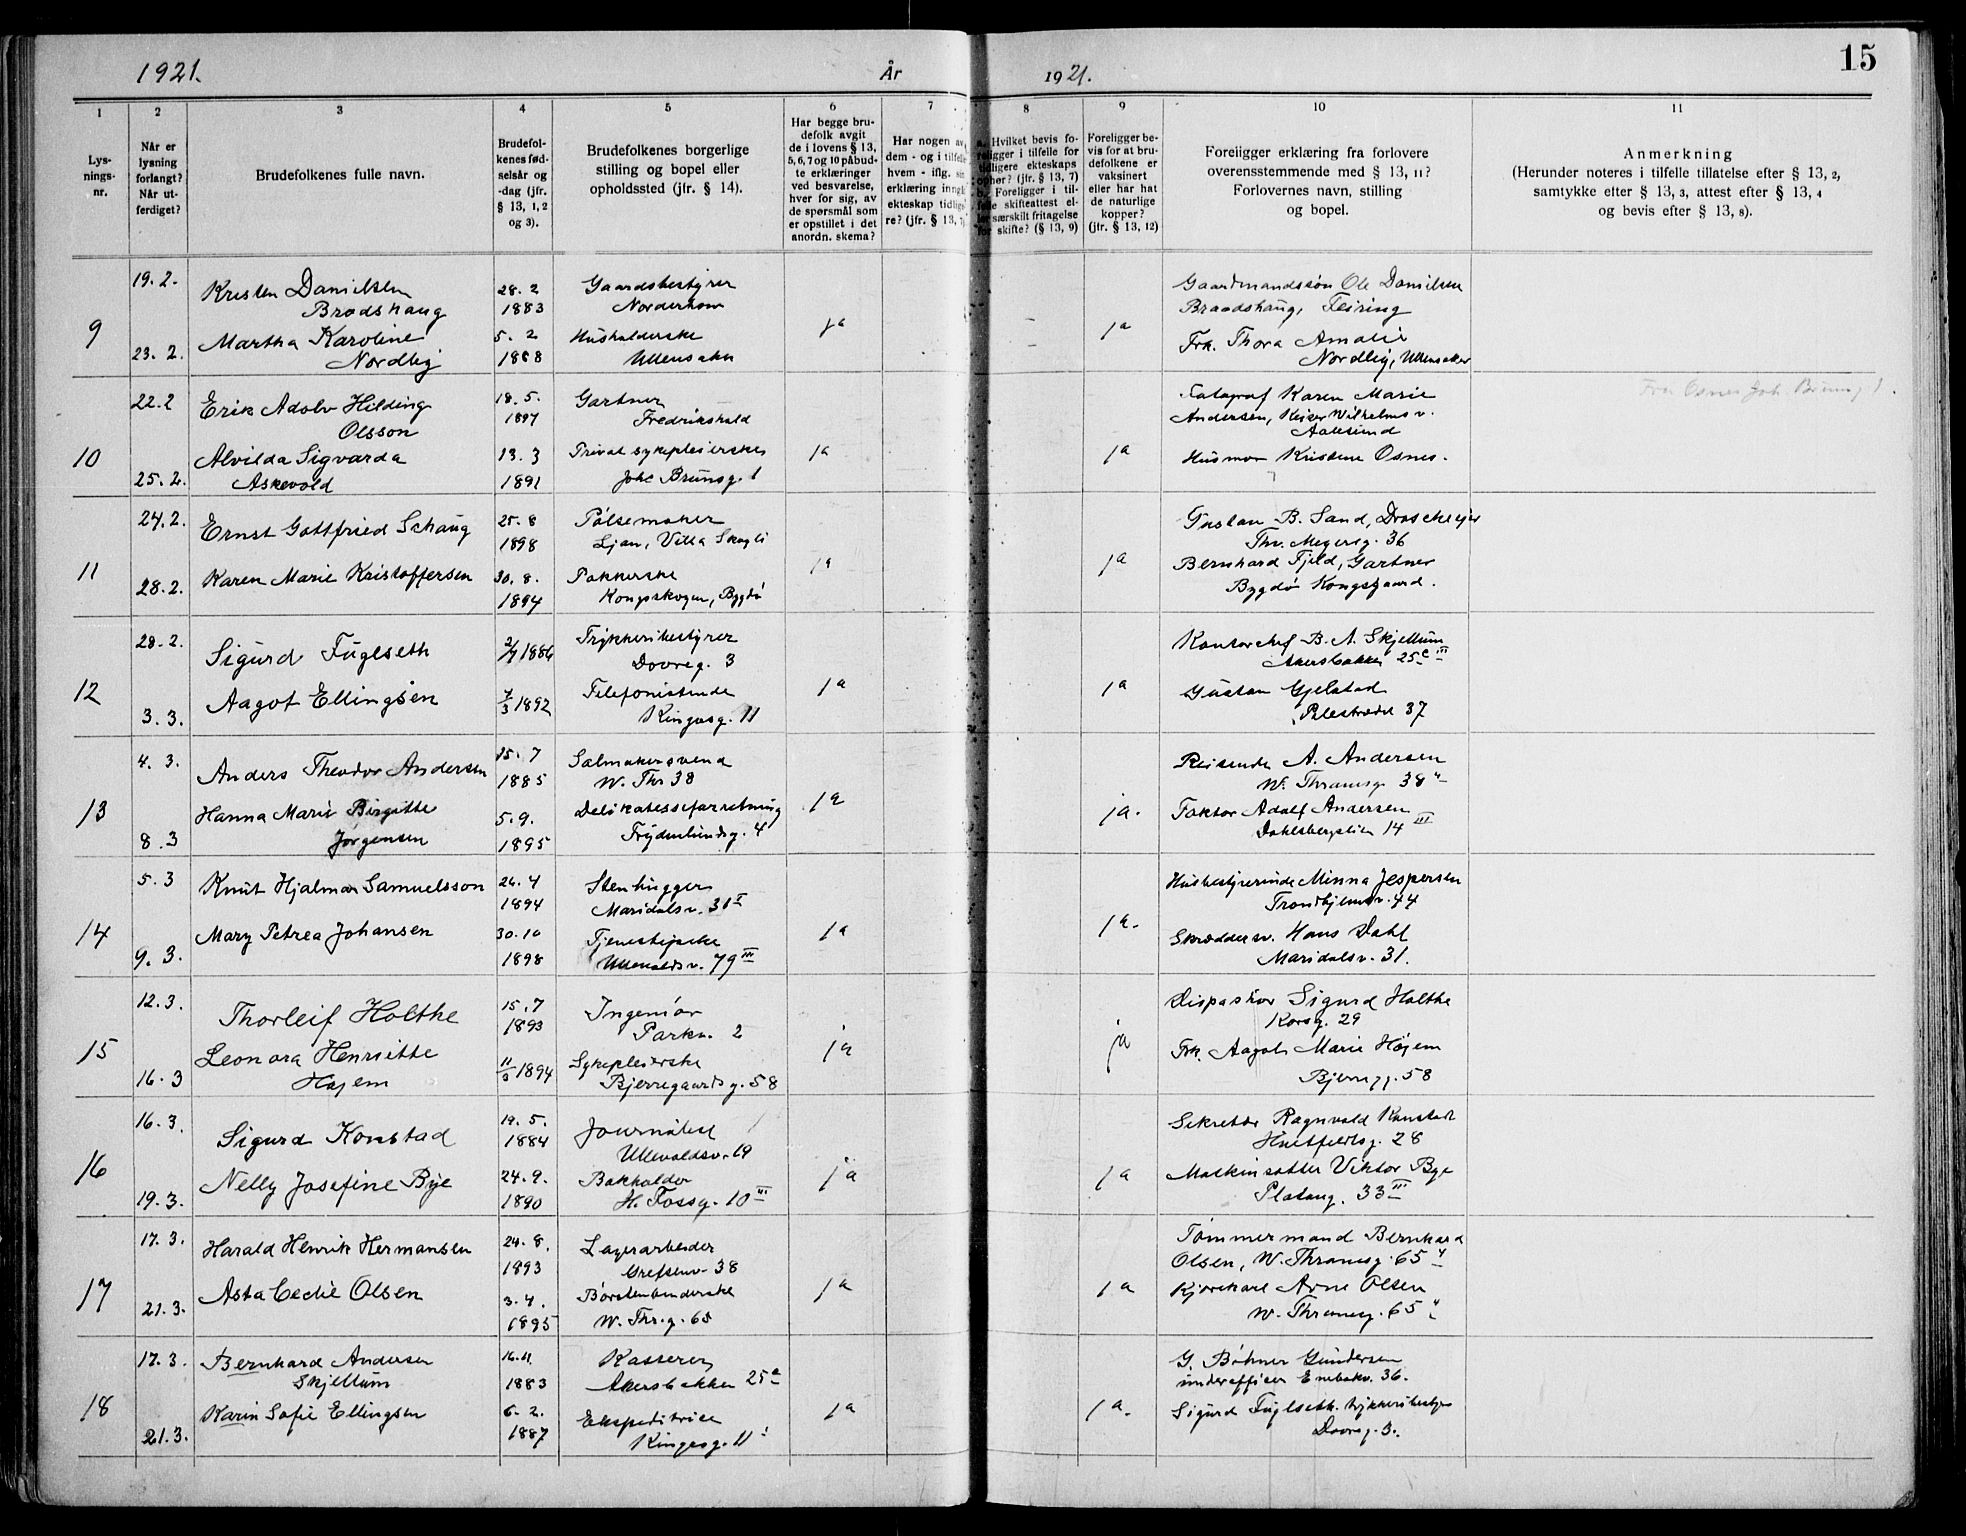 1921.
År
1921.
15
1
2
3
4
5
6
7
8
9
10
11
Lys-
nings-
nr.
Når er
lysning
forlangt?
Når ut-
ferdiget?
Brudefolkenes fulle navn.
Brudefol-
kenes fød-
selsår og
-dag (jfr.
§ 13, 1, 2
og 3).
Brudefolkenes borgerlige
stilling og bopel eller
opholdssted (jfr. § 14).
Har begge bru-
defolk avgit
de i lovens § 13,
5, 6, 7 og 10 påbud-
te erklæringer
ved besvarelse,
hver for sig, av
de spørsmål som
er opstillet i det
anordn. skema?
Har nogen av
dem - og i tilfelle
hvem - iflg. sin
erklæring inngå
ekteskap tidlige
re? (jfr. § 13, 7)
a. Hvilket bevis fo-
religger i tilfelle for
tidligere ekteskaps
ophør? (jfr. § 13, 7)
b. Foreligger i til-
felle skifteattest el-
ler særskilt fritagelse
for skifte? (§ 13, 9)
Foreligger be-
vis for at bru-
defolkene er
vaksinert
eller har hat
de naturlige
kopper?
(jfr. § 13, 12)
Foreligger erklæring fra forlovere
overensstemmende med § 13, 11?
Forlovernes navn, stilling
og bopel.
Anmerkning
(Herunder noteres i tilfelle tillatelse efter § 13, 2,
samtykke efter § 13, 3, attest efter § 13, 4
og bevis efter § 13, 8).
19.2. Kristen Danielsen 28.2 Gaardsbestyrer Gaardmandssøn Ole Danielsen
Brodshaug 1883 Norderhov Braadshaug, Feiring
9 Martha Karoline 5.2 Husholderske ja ja Frk. Thora Amalie
23.2. Nordlig 1888 Ullensaker Nordlig, Ullensaker
22.2 Erik Adolv Hilding 18.5. Gartner Fotograf Karen Marie Fru Osnes Joh. Brunsg 1.
Olsson 1897 Fredrikshald Andersen, Keiser Wilhelms v.
Aalesund
10 Alvilda Sigvarda 13.3 Privat sykepleierske ja ja Husmor Kristine Osnes.
25.2. Askevold 1891 Johs Brunsg. 1
24.2. Ernst Gottfried Schaug 25.8 Pølsemaker Gustav B. Sand, Droscheejer
1898 Ljan, Villa Skogli Thv. Meyersg. 36
11 Karen Marie Kristoffersen 30.8. Pakkerske ja ja Bernhard Fjeld, Gartner
28.2. 1894 Kongsskogen, Bygdø Bygdø Kongsgaard.
28.2. Sigurd Fuglseth 2/7 1886 Trykkeribestyrer Kontorchef B. A. Skjellum
Dovreg. 3 Akersbakken 25c III
12 Aagot Ellingsen 7/3 1892 Telefonistinde ja ja Gustav Gjelstad
3.3. Kingosg. 11 Pilestrædet 37
4.3. Anders Theodor Andersen 25.7 Salmakersvend Reisende A. Andersen
1885 W. Thr 38 W. Thranesg. 38 II
13 Hanna Marie Birgitte 5.9. Delikatesseforretning ja ja. Faktor Adolf Andersen
8.3 Jørgensen 1895 Frydenlundsg. 4 Dahlsbergstien 14 III
5.3 Knut Hjalmar Samuelsson 26.4 Stenhugger Husbestyrerinde Minna Jespersen
1894 Maridalsv. 31 I Trondhjemsv. 44
14 Mary Petrea Johansen 30.10 Tjenestepike ja ja. Skræddersv. Hans Dahl
9.3. 1898 Ullevaldsv. 79 III Maridalsv. 31.
12.3. Thorleif Holthe 15.7 Ingeniør Dispashør Sigurd Holthe
1893 Parkv. 2 Korsg. 29
15 Leonora Henriette 11/3 1894 Sykepleierske ja ja Frk. Aagot Marie Højem
16.3 Højem Bjerregaardsg. 58 Bjerregg. 58
16.3. Sigurd Konstad 19.5. Journalist Sekretær Ragnvald Konstad
1884 Ullevaldsv. 19 Huitfeldtsg. 28
16 Nelly Josefine Bye 24.9. Bokholder ja ja Maskinsetter Viktor Bye
19.3. 1890 H. Fossg. 10 III Platoug. 33 III
17.3. Harald Henrik Hermansen 24.8. Lagerarbeider Tømmermand Bernhard
1893 Grefsenv. 38 Olsen, W. Thranesg. 65 II
17 Asta Cecilie Olsen 3.4. Børstenbinderske ja ja Kjørekarl Arne Olsen
21.3. 1895 W. Thr.g. 65 W. Thranesg. 65 II
17.3. Bernhard Andersen 16.11. Kasserer G. Bøhner Gundersen
Skjellum 1883 Akersbakken 25c underofficer Enebakv. 36.
18 Karin Sofie Ellingsen 6.2. Ekspeditrice ja ja. Sigurd Fuglseth. trykkeribestyr
21.3. 1887 Kingosg. 11 Dovreg. 3.